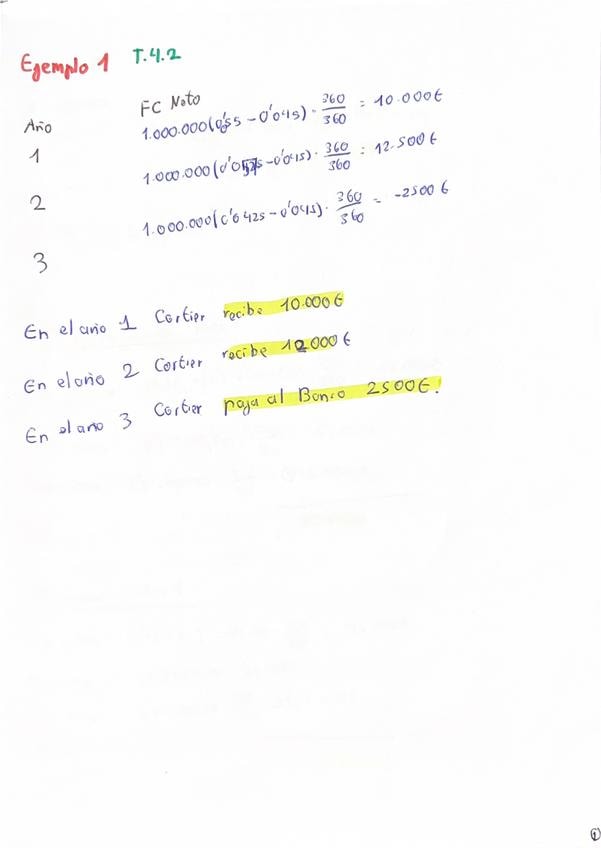 Ejemplo 1 T.4.2
FC Neto
Año
1.000.000(0'055 - 0'045) · 360/360 = 10.000€
1
1.000.000(0'0575 - 0'045) · 360/360 = 12.500€
2
1.000.000(0'0425 - 0'045) · 360/360 = -2500€
3
En el año 1 Cartier recibe 10.000€
En el año 2 Cartier recibe 12000€
En el año 3 Cartier paga al Banco 2500€.
1